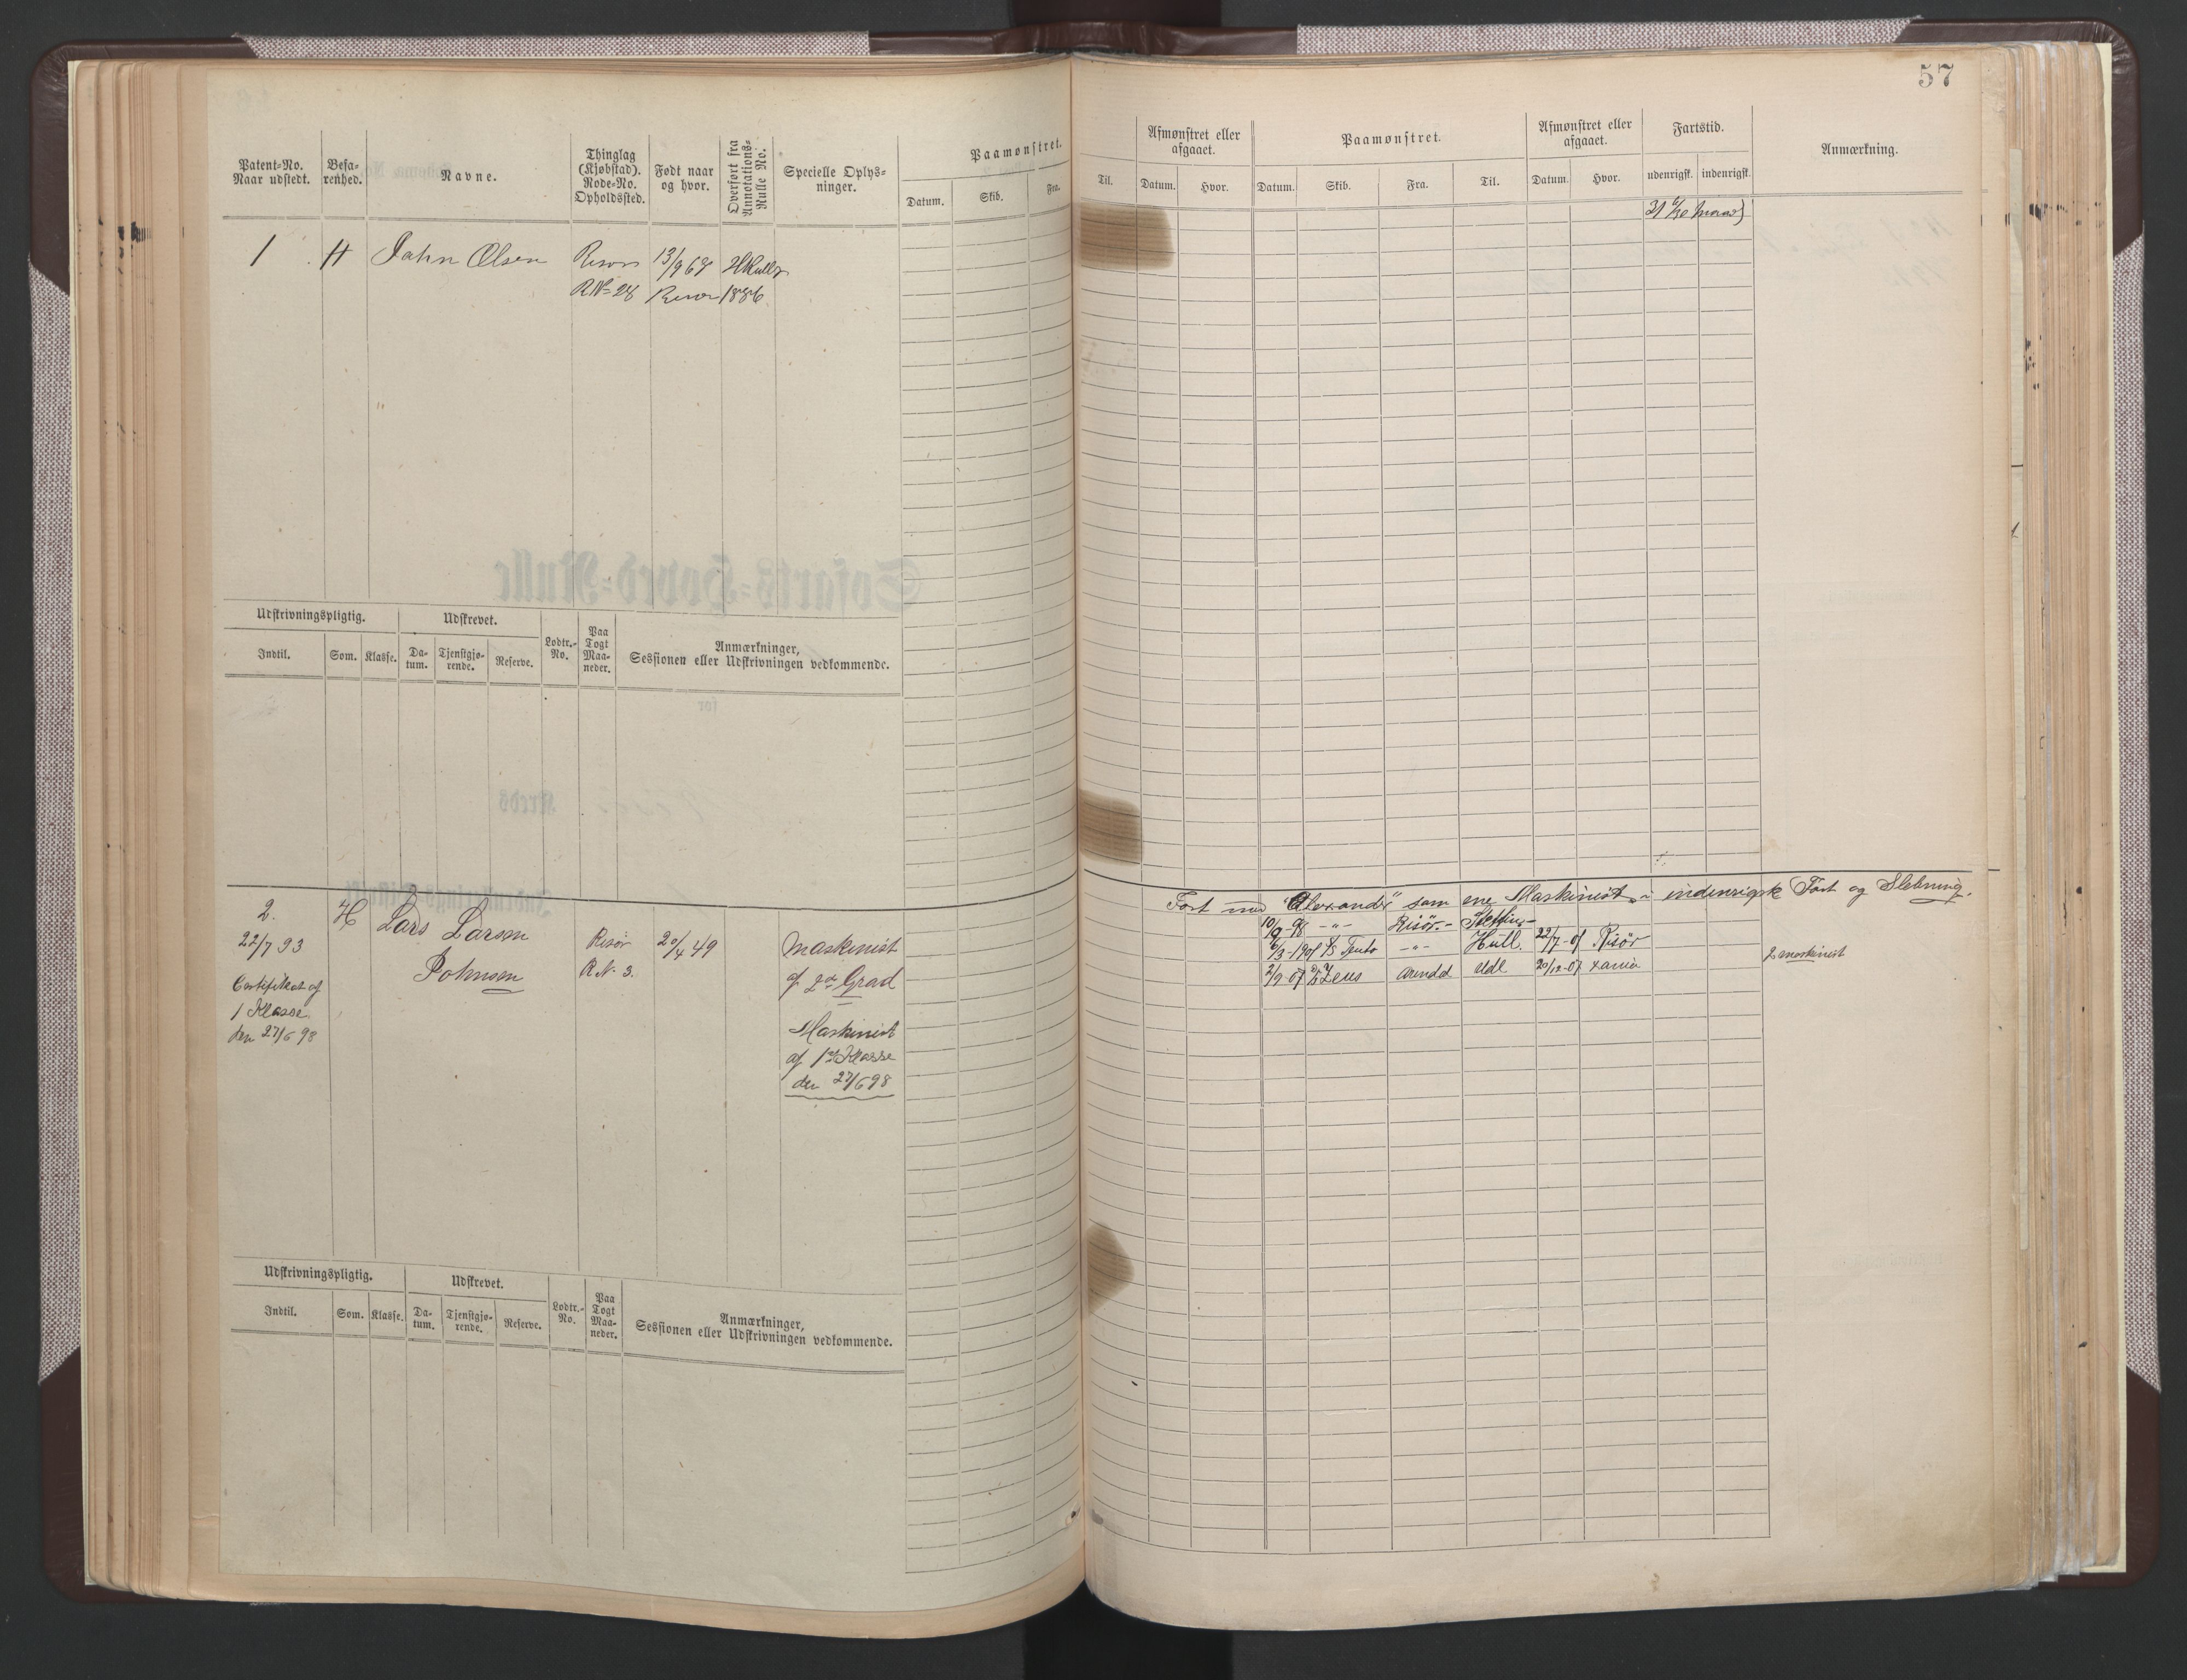 57
Patent-No. Naar udstedt.
Befa-renhed.
Navne.
Thinglag (Kjøbstad). Rode-No. Opholdssted.
Født naar og hvor.
Overført fra Annotations-Rulle No.
Specielle Oplys-ninger.
Paamønstret.
Datum. Skib. Fra. Til.
Afmønstret eller afgaaet.
Datum. Hvor.
Paamønstret.
Datum. Skib. Fra. Til.
Afmønstret eller afgaaet.
Datum. Hvor.
Fartstid.
udenrigsk. indenrigsk.
Anmærkning.
1 H John Olsen Risør 13/9 69 HRulle
R№ 28 Risør 1886.
Udskrivningspligtig. Udskrevet. Lodtr.-No. Paa Togt Maa-neder. Anmærkninger, Sessionen eller Udskrivningen vedkommende.
Indtil. Som. Klasse. Da-tum. Tjenstgjø-rende. Reserve.
2. H Lars Larsen
22/7 93 Johnsen Risør 20/4 49 Maskinist
Certifikat af R.N. 3. af 2den Grad
1 Klasse Maskinist
den 27/6 98 af 1ste Klasse
den 27/6 98
Fart med "Alexander" som ene Maskinist i indenrigsk Fart og Slebning.
10/9-98 -"- Risör.- Stettin-
6/3-1901 -"- Hull. 22/7-01 Risör
2/9-07 Zeus Arendal eldl 20/12-07 Xania 2 maskinist
Udskrivningspligtig. Udskrevet. Lodtr.-No. Paa Togt Maa-neder. Anmærkninger, Sessionen eller Udskrivningen vedkommende.
Indtil. Som. Klasse. Da-tum. Tjenstgjø-rende. Reserve.